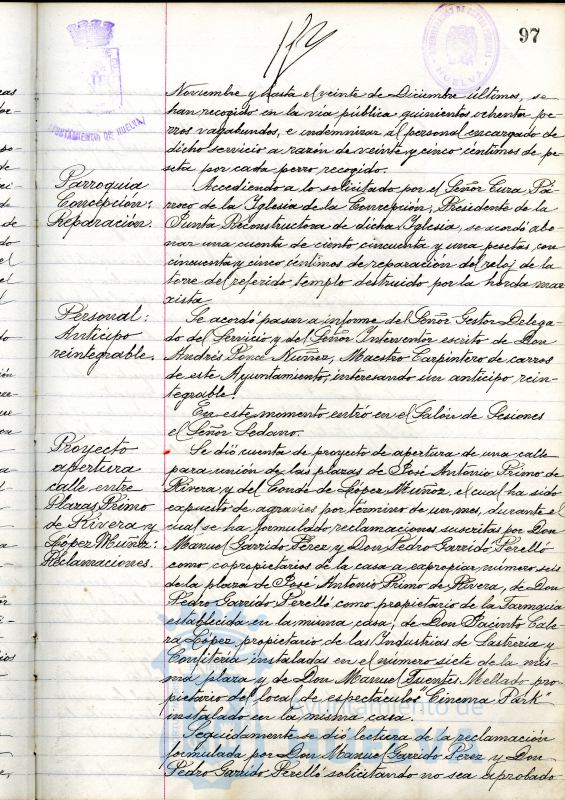 97
ADMINISTRACION DE RENTAS PUBLICAS
HUELVA
AYUNTAMIENTO DE HUELVA
Noviembre y hasta el veinte de Diciembre últimos, se
han recogido en la via pública quinientos ochenta pe-
rros vagabundos, e indemnizar al personal encargado de
dicho servicio a razón de veinte y cinco céntimos de pe-
seta por cada perro recogido.
Parroquia
Concepción:
Reparación.
Accediendo a lo solicitado por el Señor Cura Pá-
rroco de la Iglesia de la Concepción, Presidente de la
Junta Reconstructora de dicha Iglesia, se acordó abo-
nar una cuenta de ciento cincuenta y una pesetas con
cincuenta y cinco céntimos de reparación del reloj de la
torre del referido templo destruido por la horda mar-
xista.
Personal:
Anticipo
reintegrable.
Se acordó pasar a informe del Señor Gestor Delega-
do del Servicio y del Señor Interventor escrito de Don
Andrés Ponce Nuñez, Maestro Carpintero de carros
de este Ayuntamiento, interesando un anticipo rein-
tegrable.
En este momento entró en el Salón de Sesiones
el Señor Sedano.
Proyecto
apertura
calle entre
Plazas Primo
de Rivera y
López Muñoz:
Reclamaciones.
Se dió cuenta de proyecto de apertura de una calle
para unión de las plazas de José Antonio Primo de
Rivera y del Conde de López Muñoz, el cual ha sido
expuesto de agravios por término de un mes, durante el
cual se ha formulado reclamaciones suscritas por Don
Manuel Garrido Perez y Don Pedro Garrido Perelló
como copropietarios de la casa a expropiar número seis
de la plaza de José Antonio Primo de Rivera, de Don
Pedro Garrido Perelló como propietario de la Farmacia
establecida en la misma casa, de Don Jacinto Cale-
ra López, propietario de las Industrias de Sastreria y
Confiteria instaladas en el número siete de la mis-
ma plaza y de Don Manuel Fuentes Mellado pro-
pietario del local de espectáculos "Cinema Park"
instalado en la misma casa.
Seguidamente se dió lectura de la reclamación
formulada por Don Manuel Garrido Perez y Don
Pedro Garrido Perelló solicitando no sea aprobado
Ayuntamiento de
HUELVA